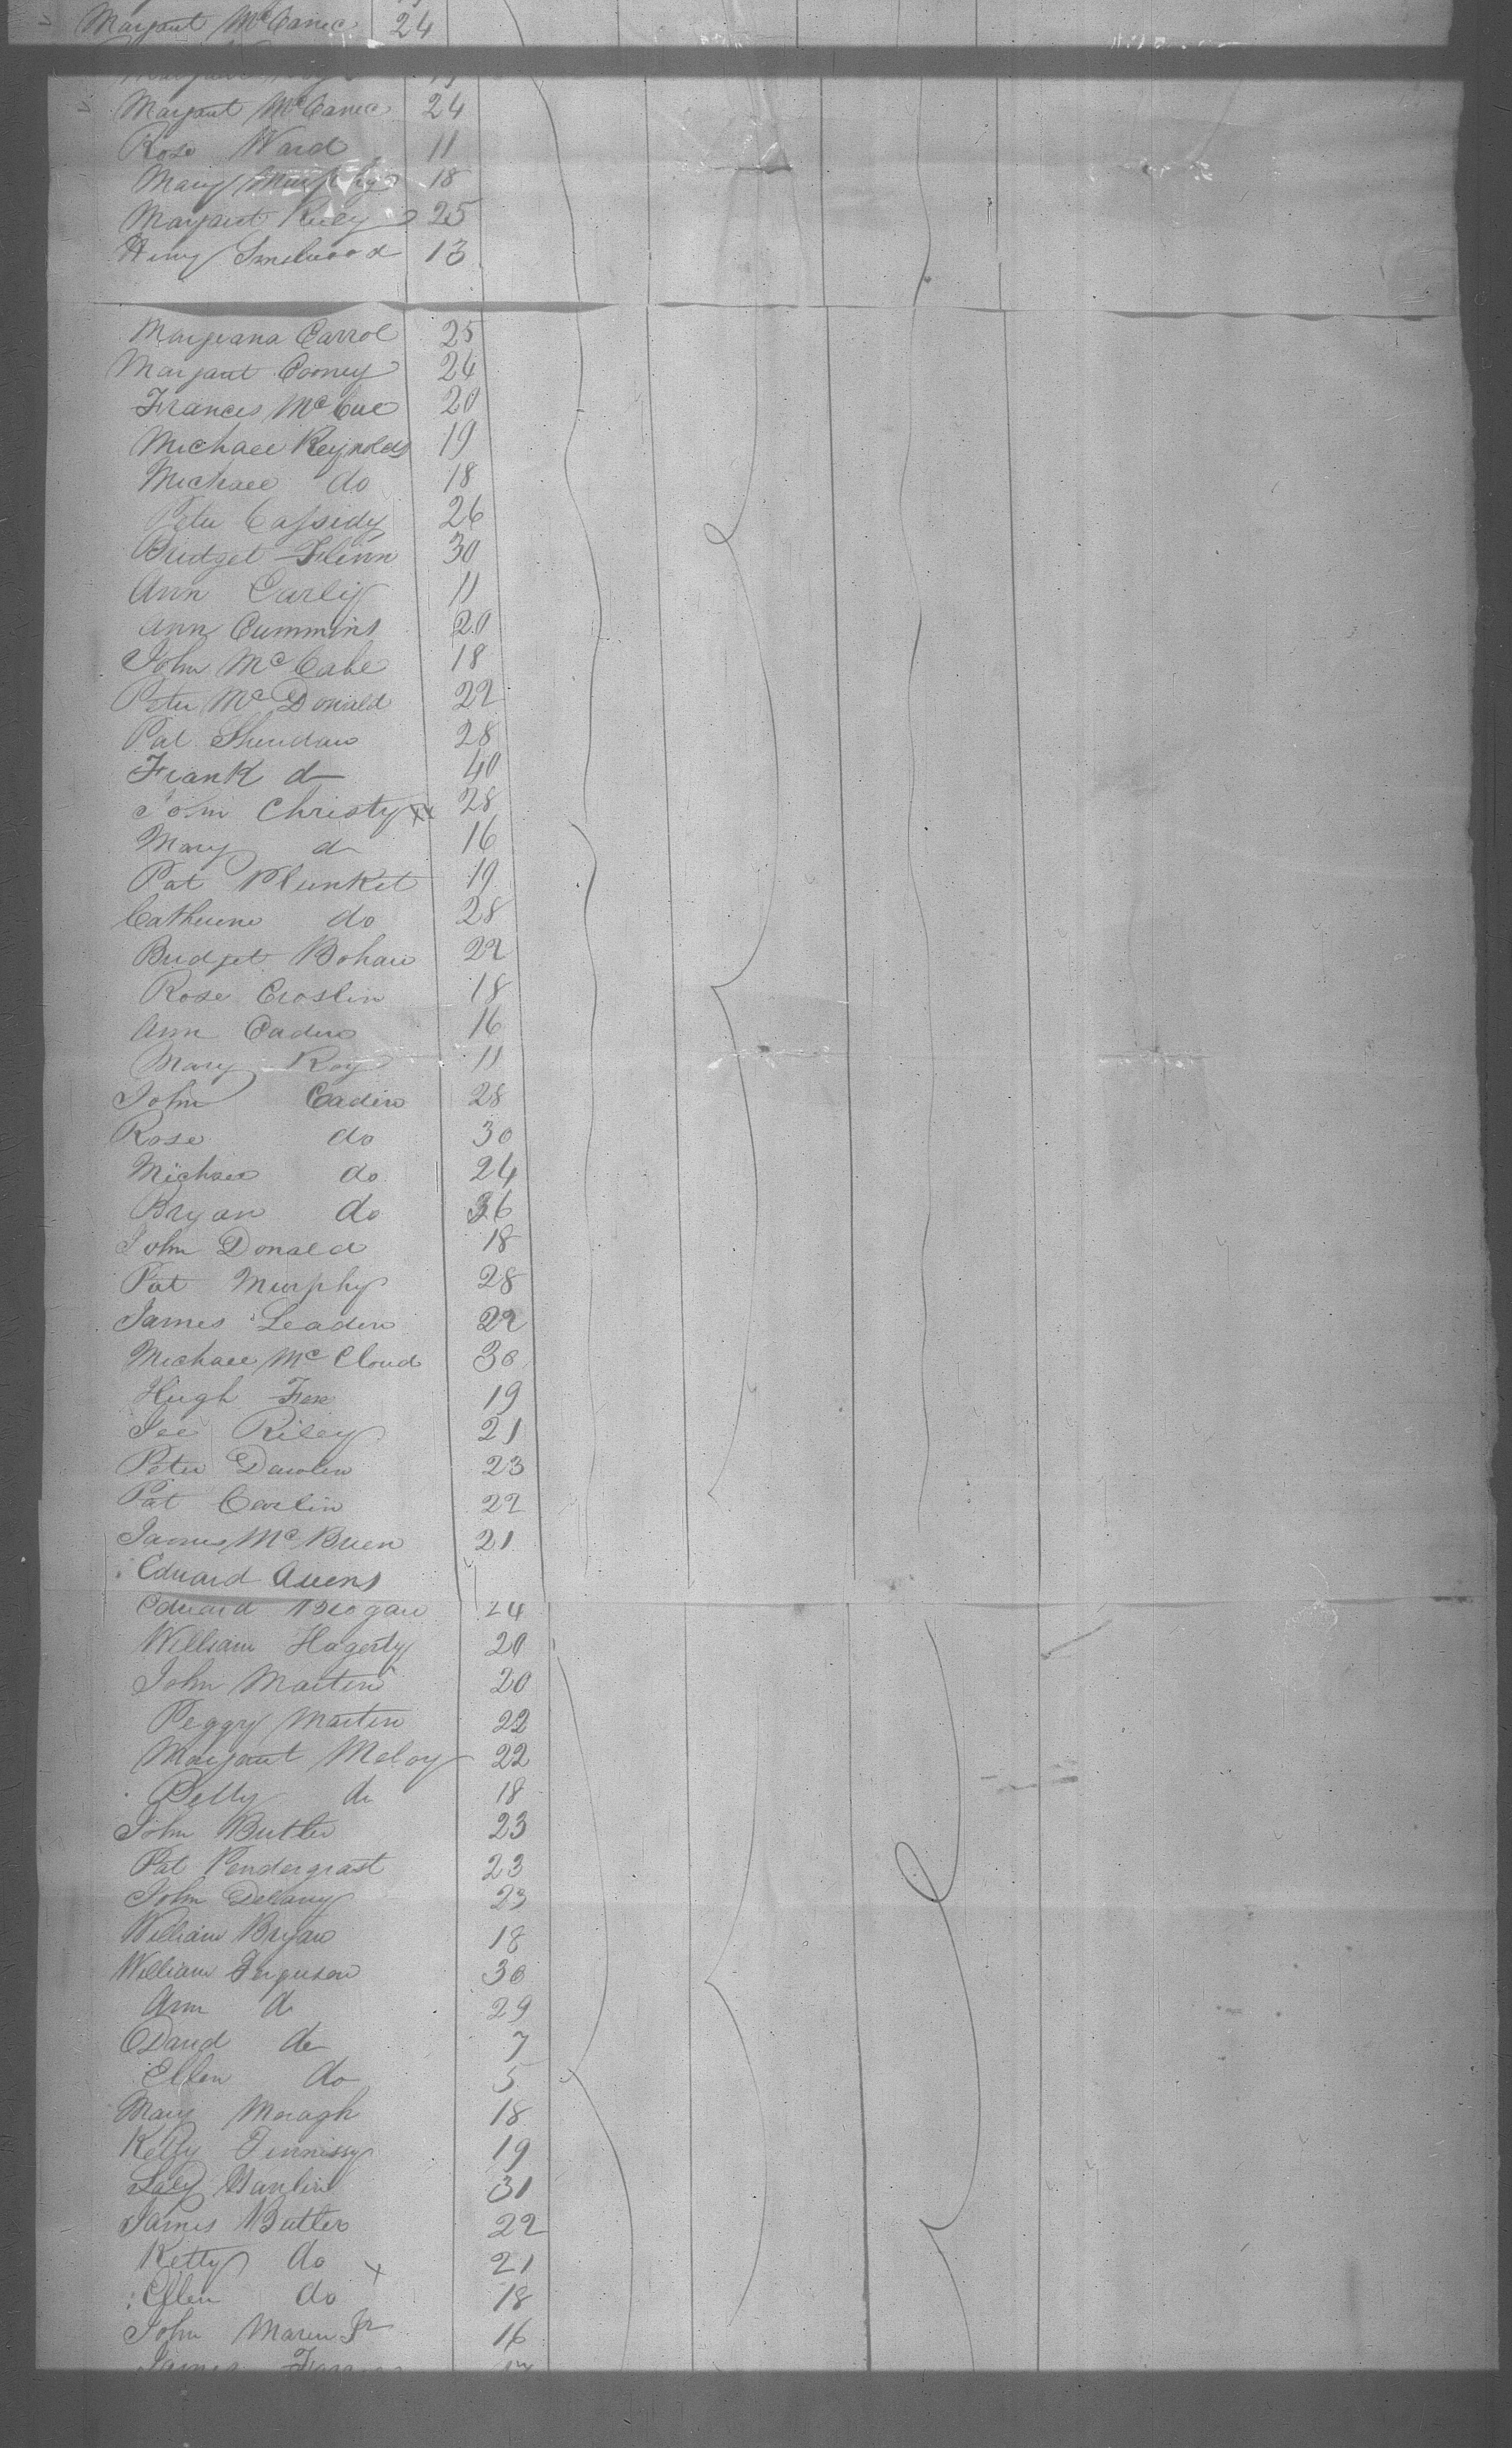 Margaret McCanec 24
Margaret McCanec 24
Rose Ward 11
Mary Murphy 18
Margaret Riley 25
Henry 13
Margeana Carrol 25
Margaret Cooney 24
Frances McCue 20
Michael Reynolds 19
Michael do 18
Peter Cassidy 26
Bridget Flinn 30
Ann Carley 11
Ann Cummins 20
John McCabe 18
Peter McDonald 22
Pat Sheridan 28
Frank do 40
John Christy xx 28
Mary do 16
Pat Plunket 19
Catherine do 28
Bridget Bohan 22
Rose Croslin 18
Ann Caden 16
Mary Roy 11
John Caden 28
Rose do 30
Michael do 24
Bryan do 36
John Donald 18
Pat Murphy 28
James Leaden 22
Michael McCloud 30
Hugh Fox 19
Riley 21
Peter Dawlen 23
Pat Carlin 22
James McBrien 21
Edward Owens
Edward Brogan 24
William Hagerty 20
John Martin 20
Peggy Martin 22
Margaret Meloy 22
Betty do 18
John Butler 23
Pat Pendergrast 23
John Delany 23
William Bryan 18
William Ferguson 30
Ann do 29
David do 7
Ellen do 5
Mary Moragh 18
Kitty Finnissy 19
Hanlin 31
James Butler 22
Kitty do x 21
Ellen do 18
John Maren Jr 16
James